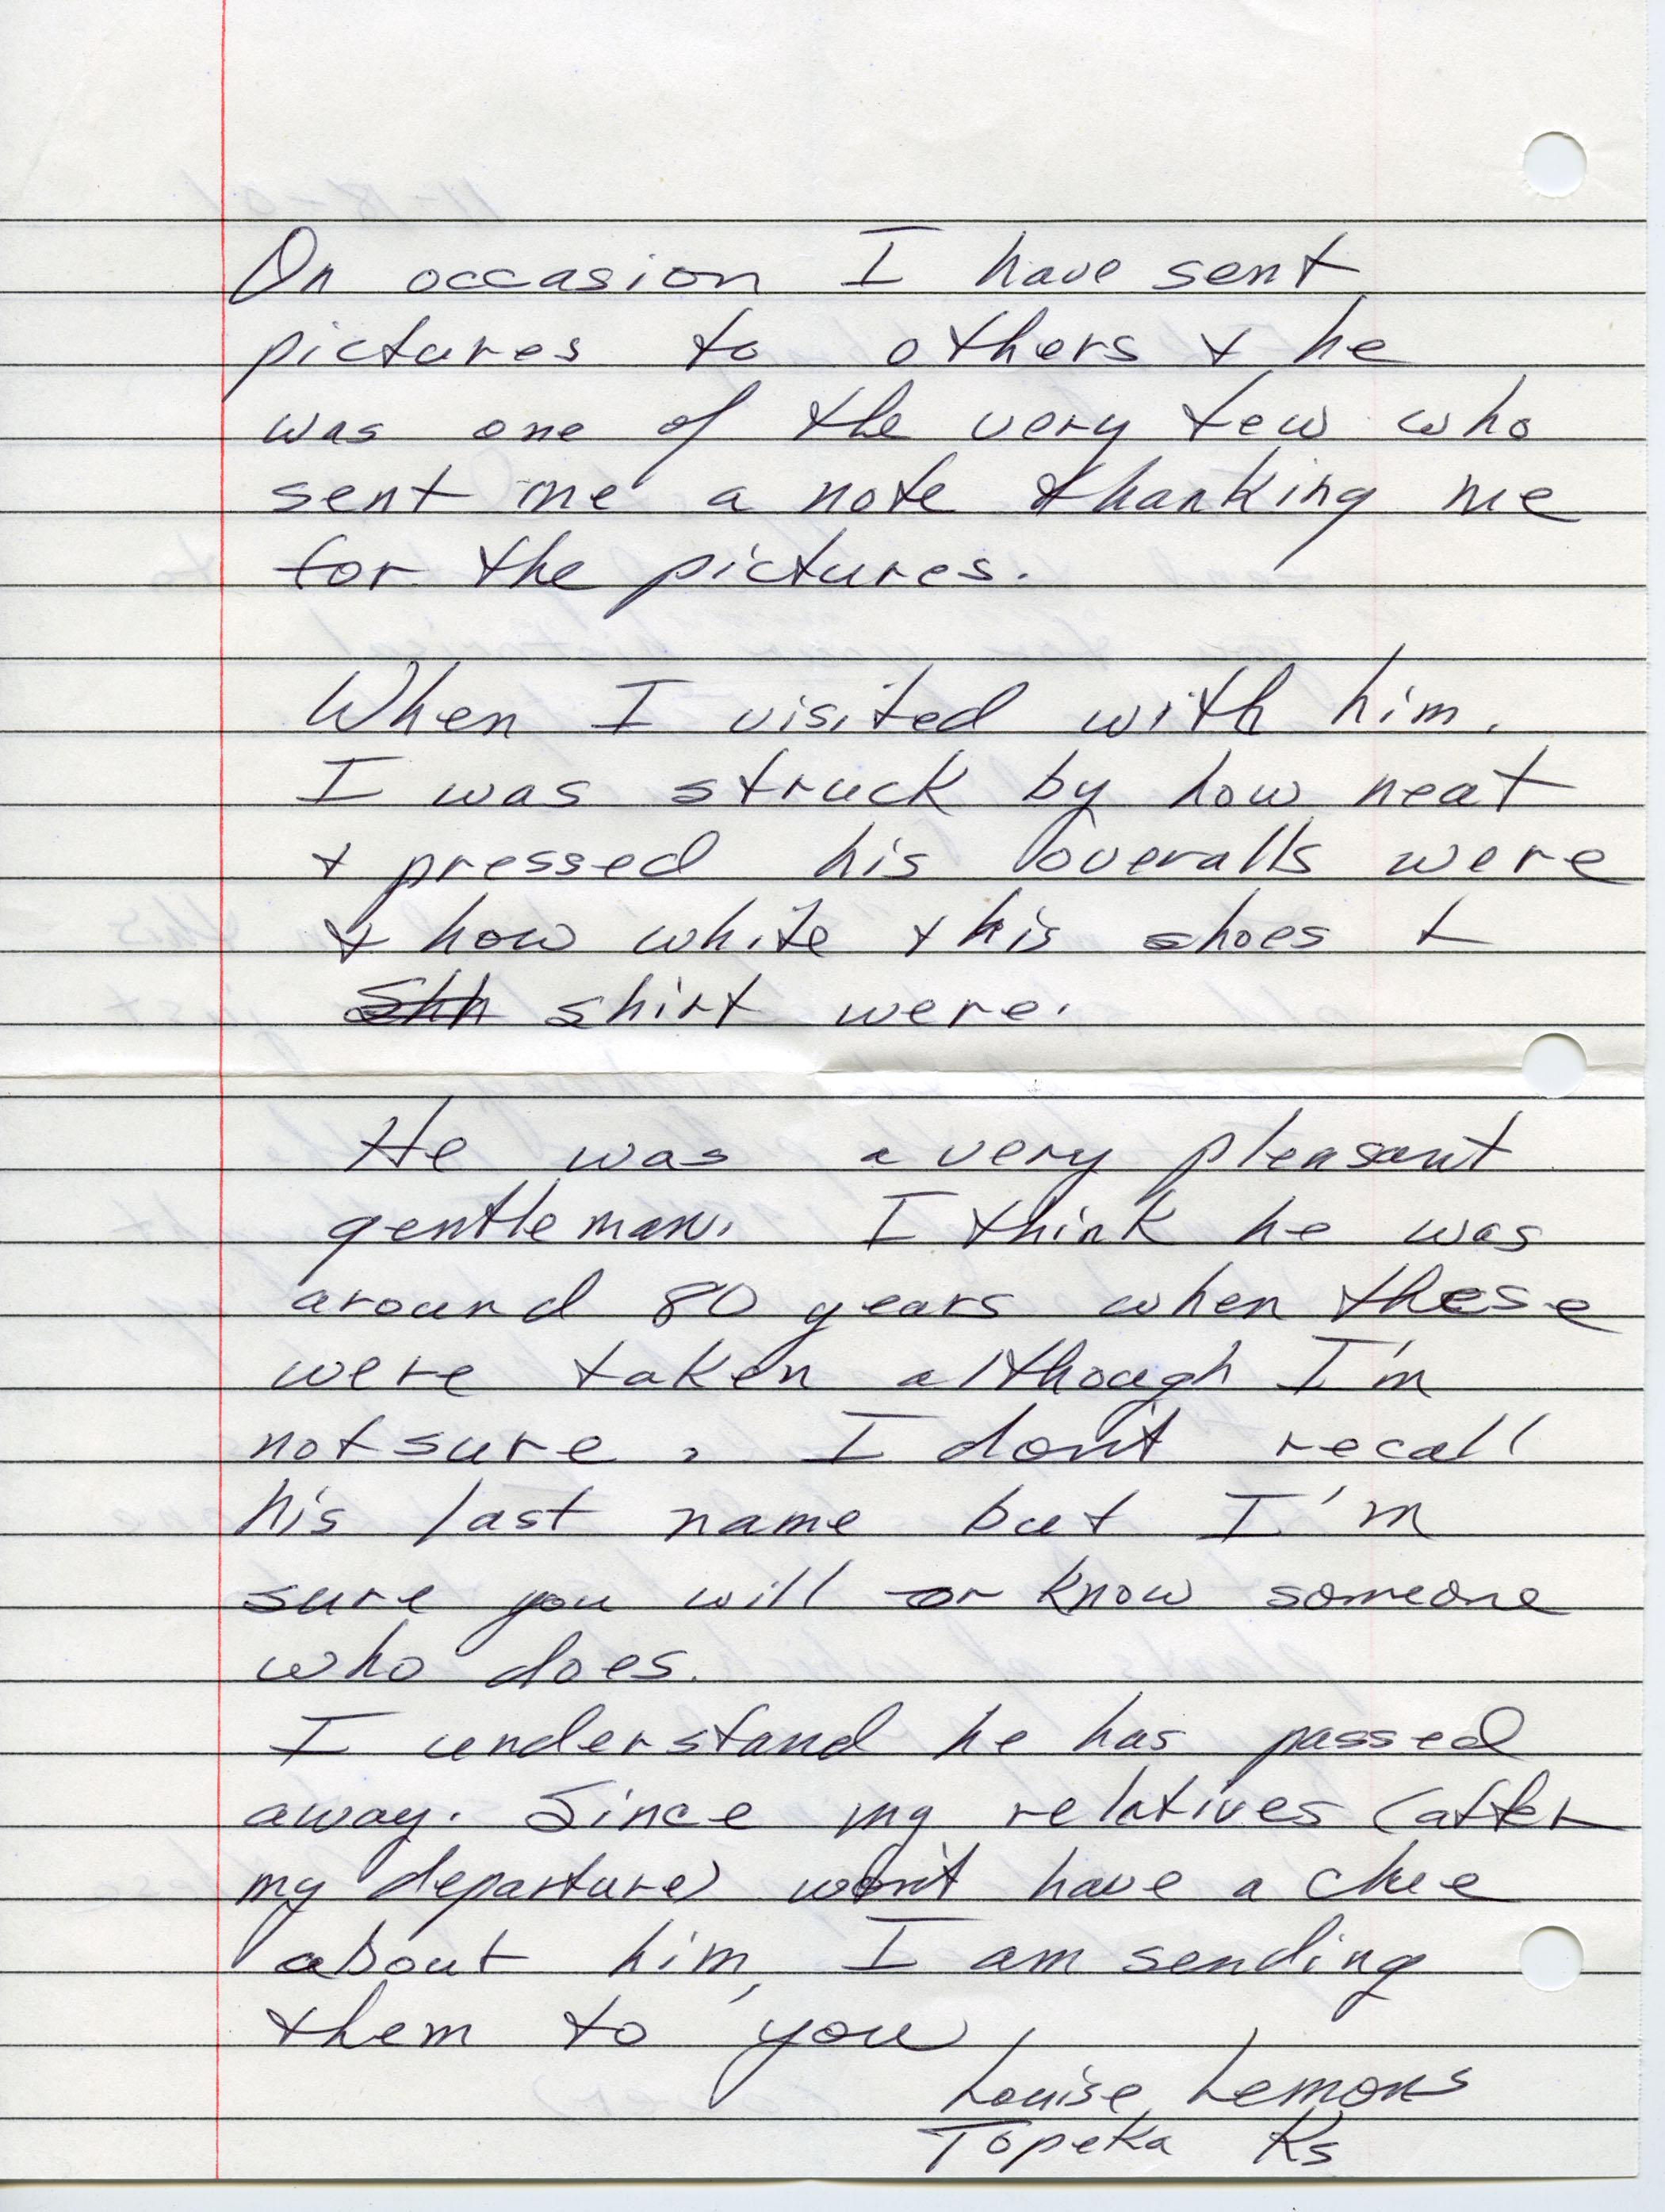 On occasion I have sent
pictures to others + he
was one of the very few who
sent me a note thanking me
for the pictures.
When I visited with him.
I was struck by how neat
+ pressed his overalls were
+ how white + his shoes +
Shh shirt were.
He was a very pleasant
gentleman. I think he was
around 80 years when these
were taken although I'm
not sure. I don't recall
his last name but I'm
sure you will or know someone
who does.
I understand he has passed
away. Since my relatives (after
my departure) won't have a clue
about him, I am sending
them to you,
Louise Lemons
Topeka Ks